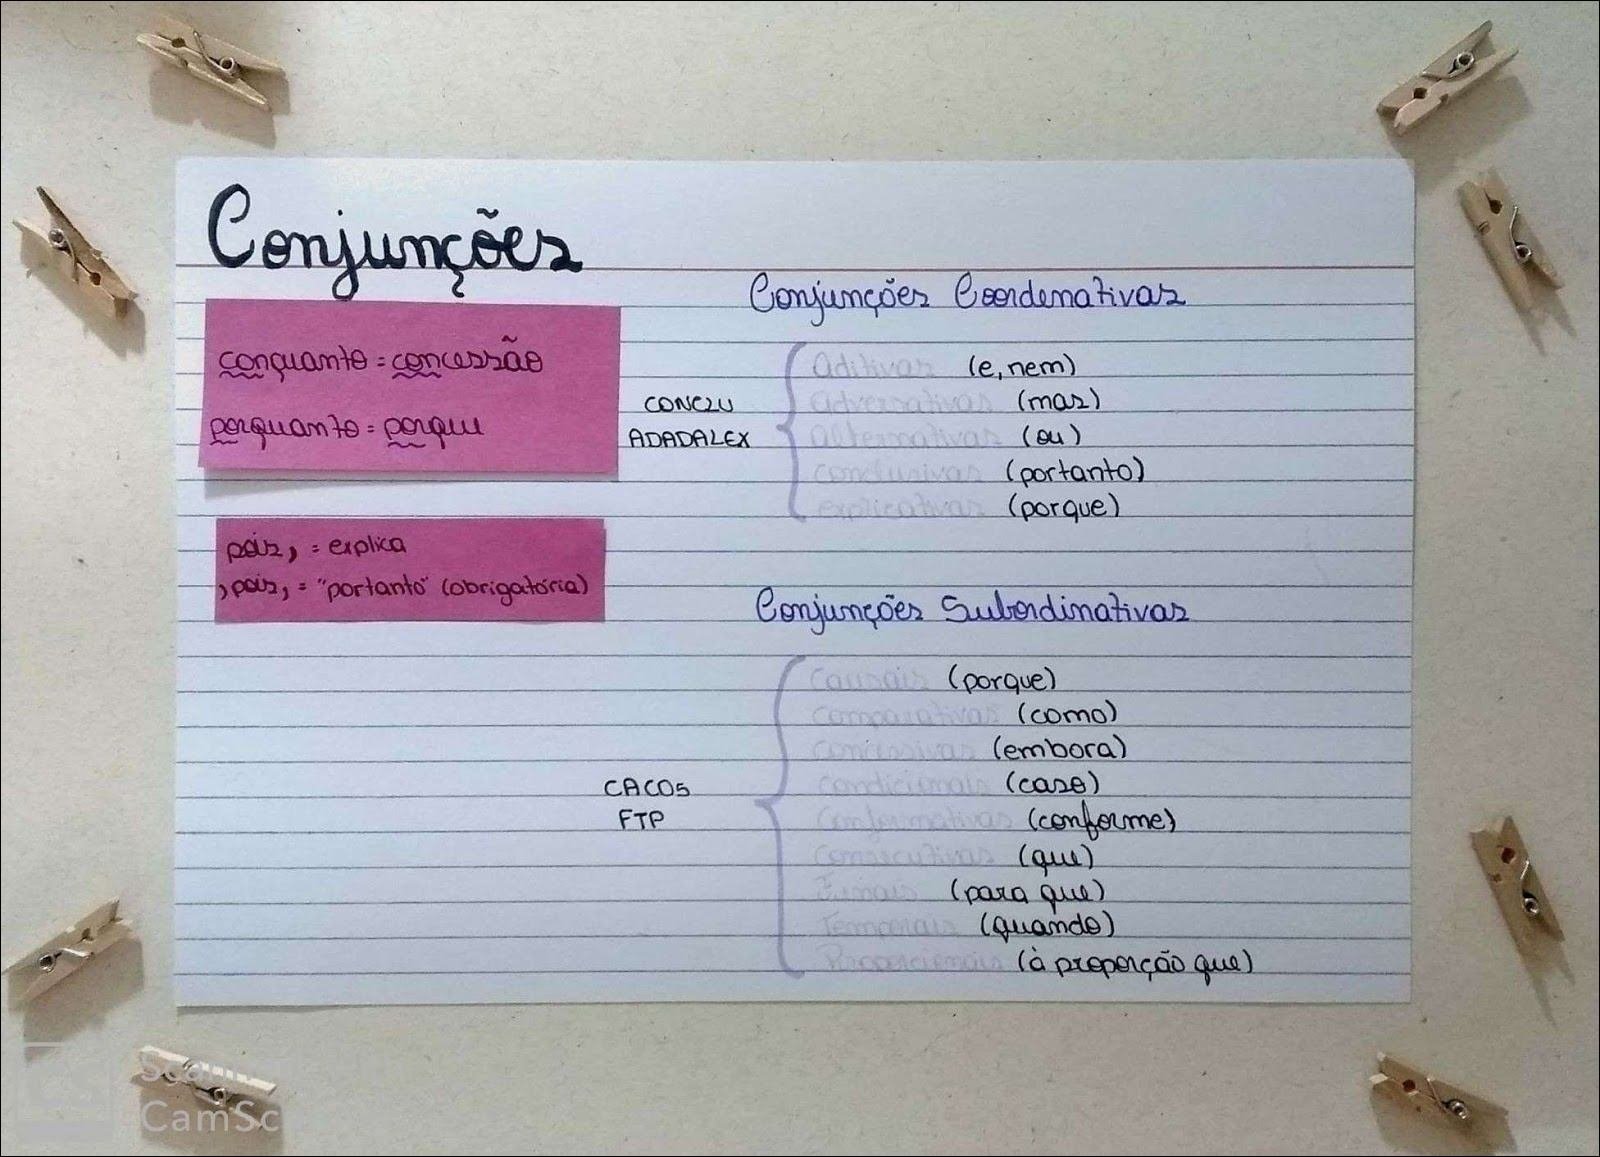 Conjunções
conquanto = concessão
porquanto = porque
pois, = explica
, pois, = "portanto" (obrigatória)
Conjunções Coordenativas
CONCLU
ADADALEX
Aditivas (e, nem)
Adversativas (mas)
Alternativas (ou)
conclusivas (portanto)
explicativas (porque)
Conjunções Subordinativas
CACO5
FTP
Causais (porque)
Comparativas (como)
Concessivas (embora)
Condicionais (caso)
Conformativas (conforme)
Consecutivas (que)
Finais (para que)
Temporais (quando)
Proporcionais (à proporção que)
CS
CamSc